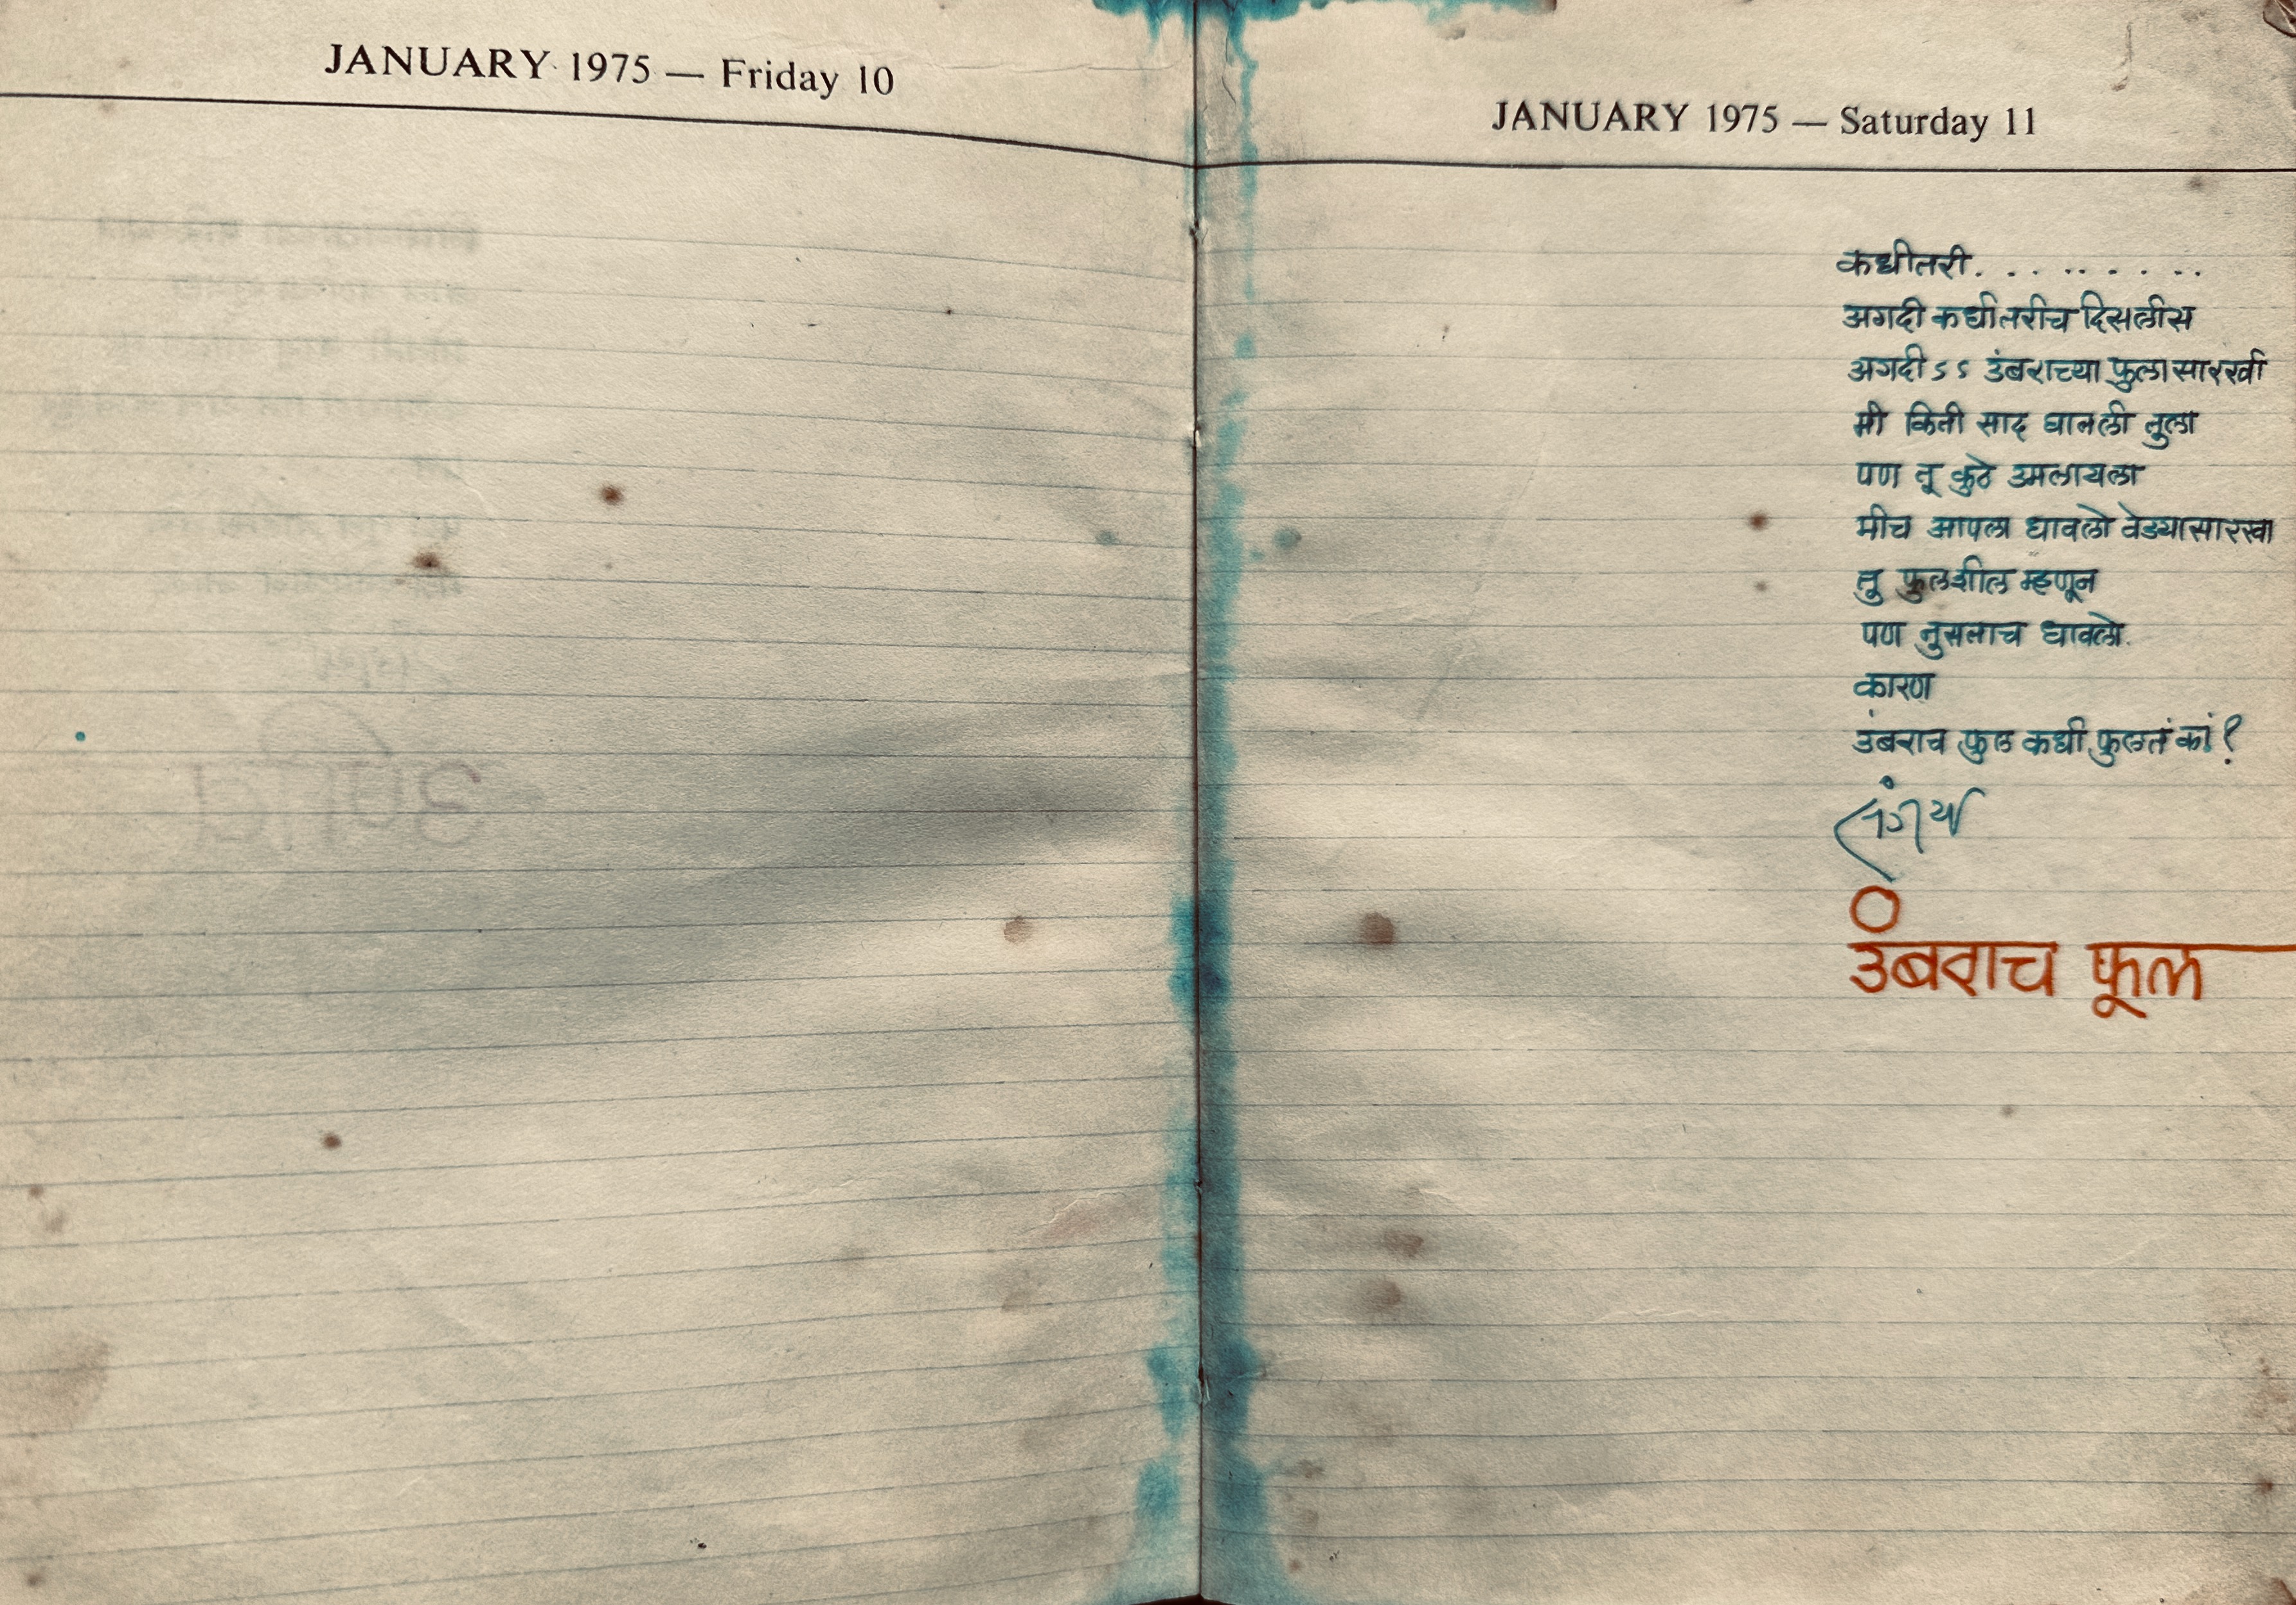 JANUARY 1975 — Friday 10
JANUARY 1975 — Saturday 11
कधीतरी. . . . . . . . .
अगदी कधीतरीच दिसलीस
अगदी ऽ ऽ उंबराच्या फुलासारखी
मी किती साद घातली तुला
पण तू कुठे उमलायला
मीच आपला धावलो वेड्यासारखा
तु फुलशील म्हणून
पण नुसताच धावलो.
कारण
उंबराच फुल कधी फुलतं कां?
उंबराच फूल